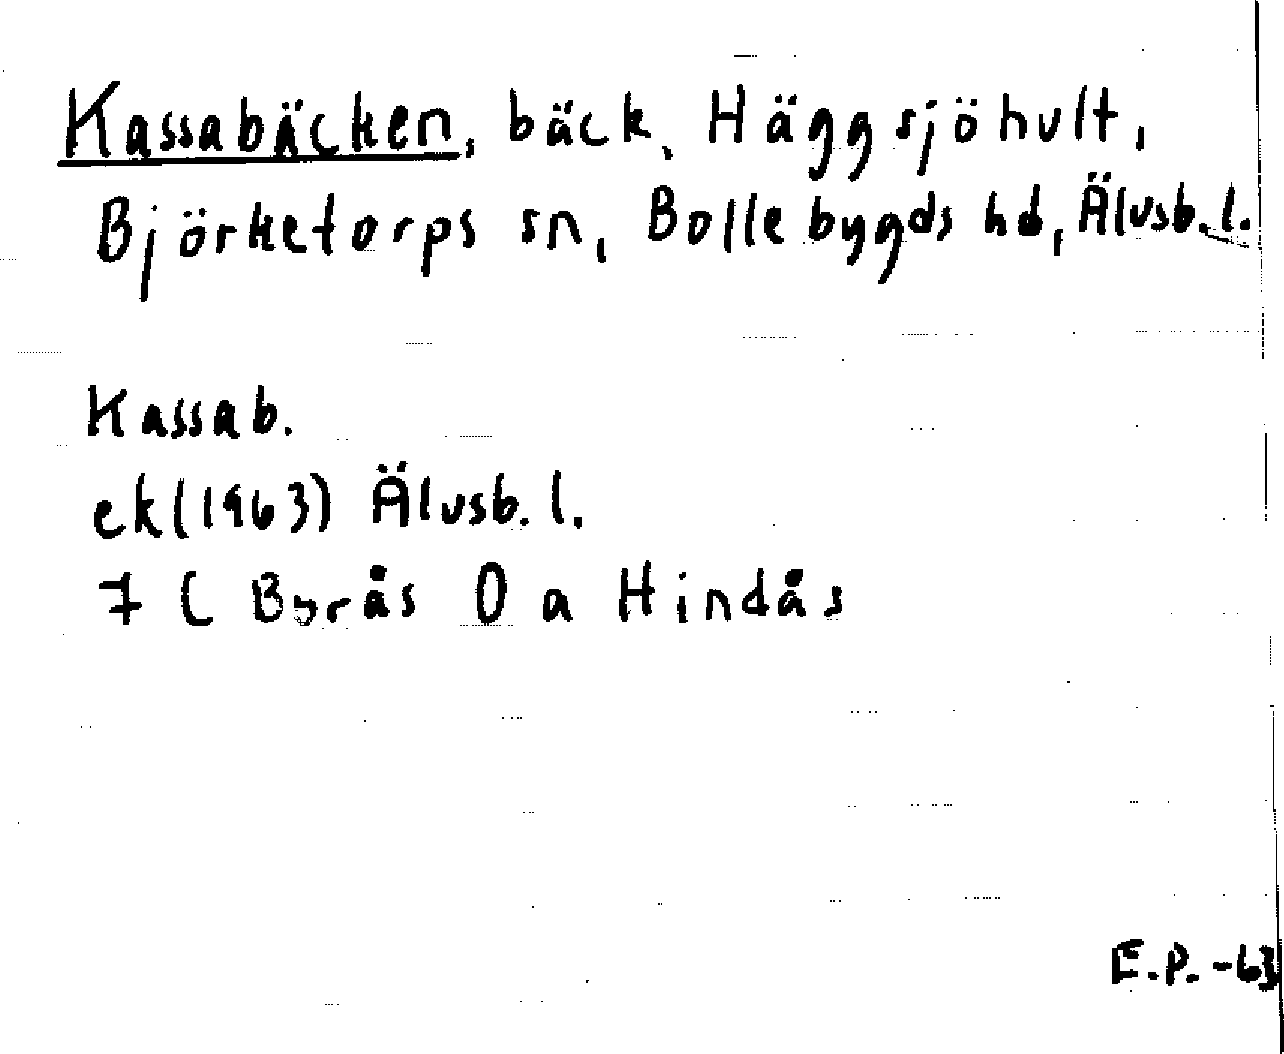 Kassabäcken, bäck, Häggsjöhult,
Björketorps sn, Bollebygds hd, Älvsb. l.
Kassab.
ek (1963) Älvsb. l.
7 C Borås 0 a Hindås
E.P. -63